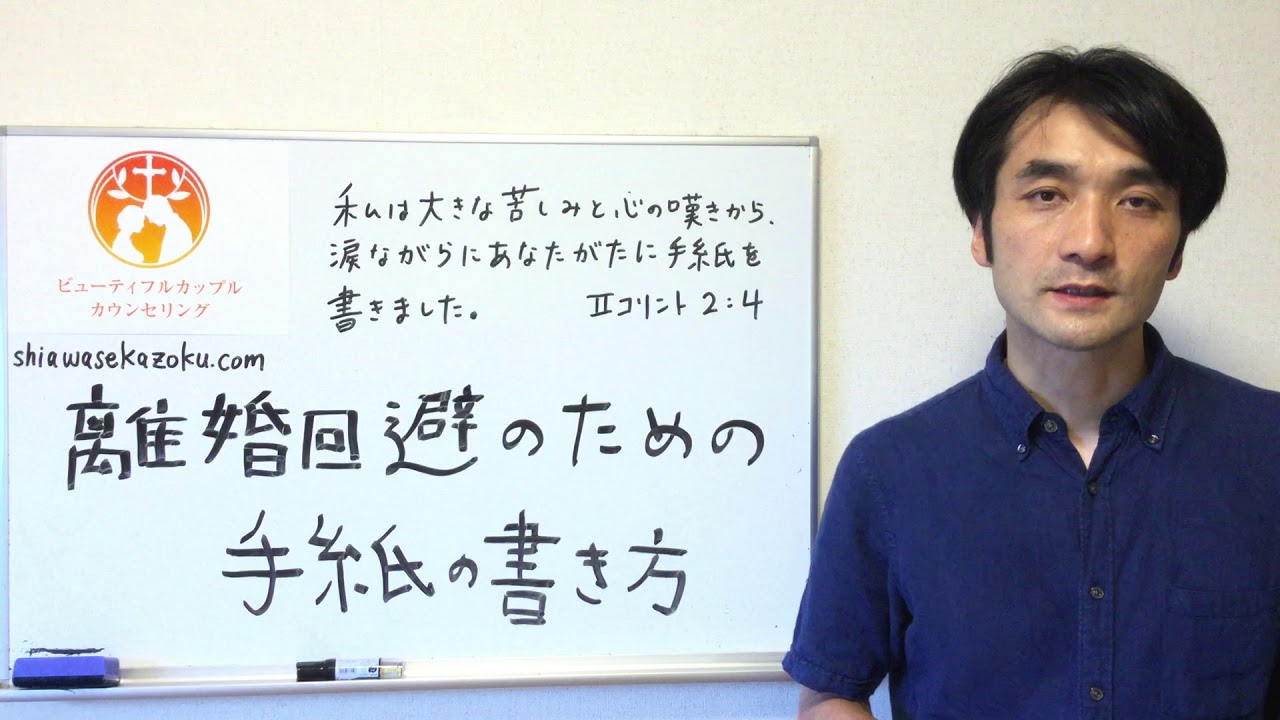 ビューティフルカップル
カウンセリング
shiawasekazoku.com
私は大きな苦しみと、心の嘆きから、
涙ながらにあなたがたに手紙を
書きました。 Ⅱコリント2:4
離婚回避のための
手紙の書き方